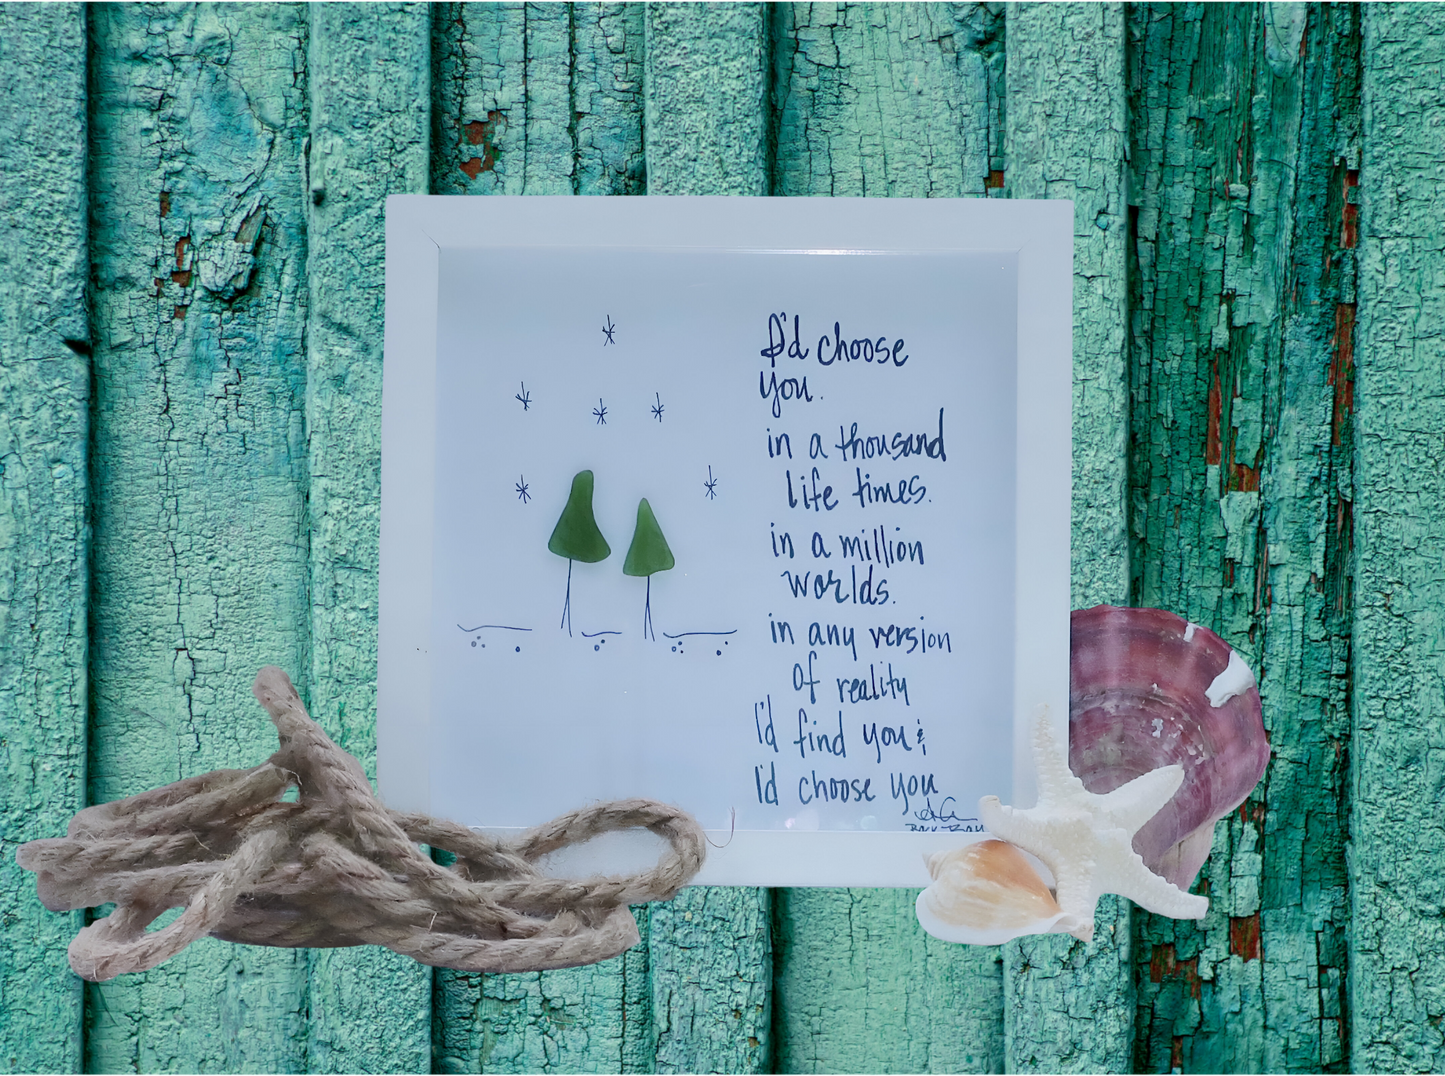 I'd choose
you.
in a thousand
life times.
in a million
worlds.
in any version
of reality
I'd find you &
I'd choose you